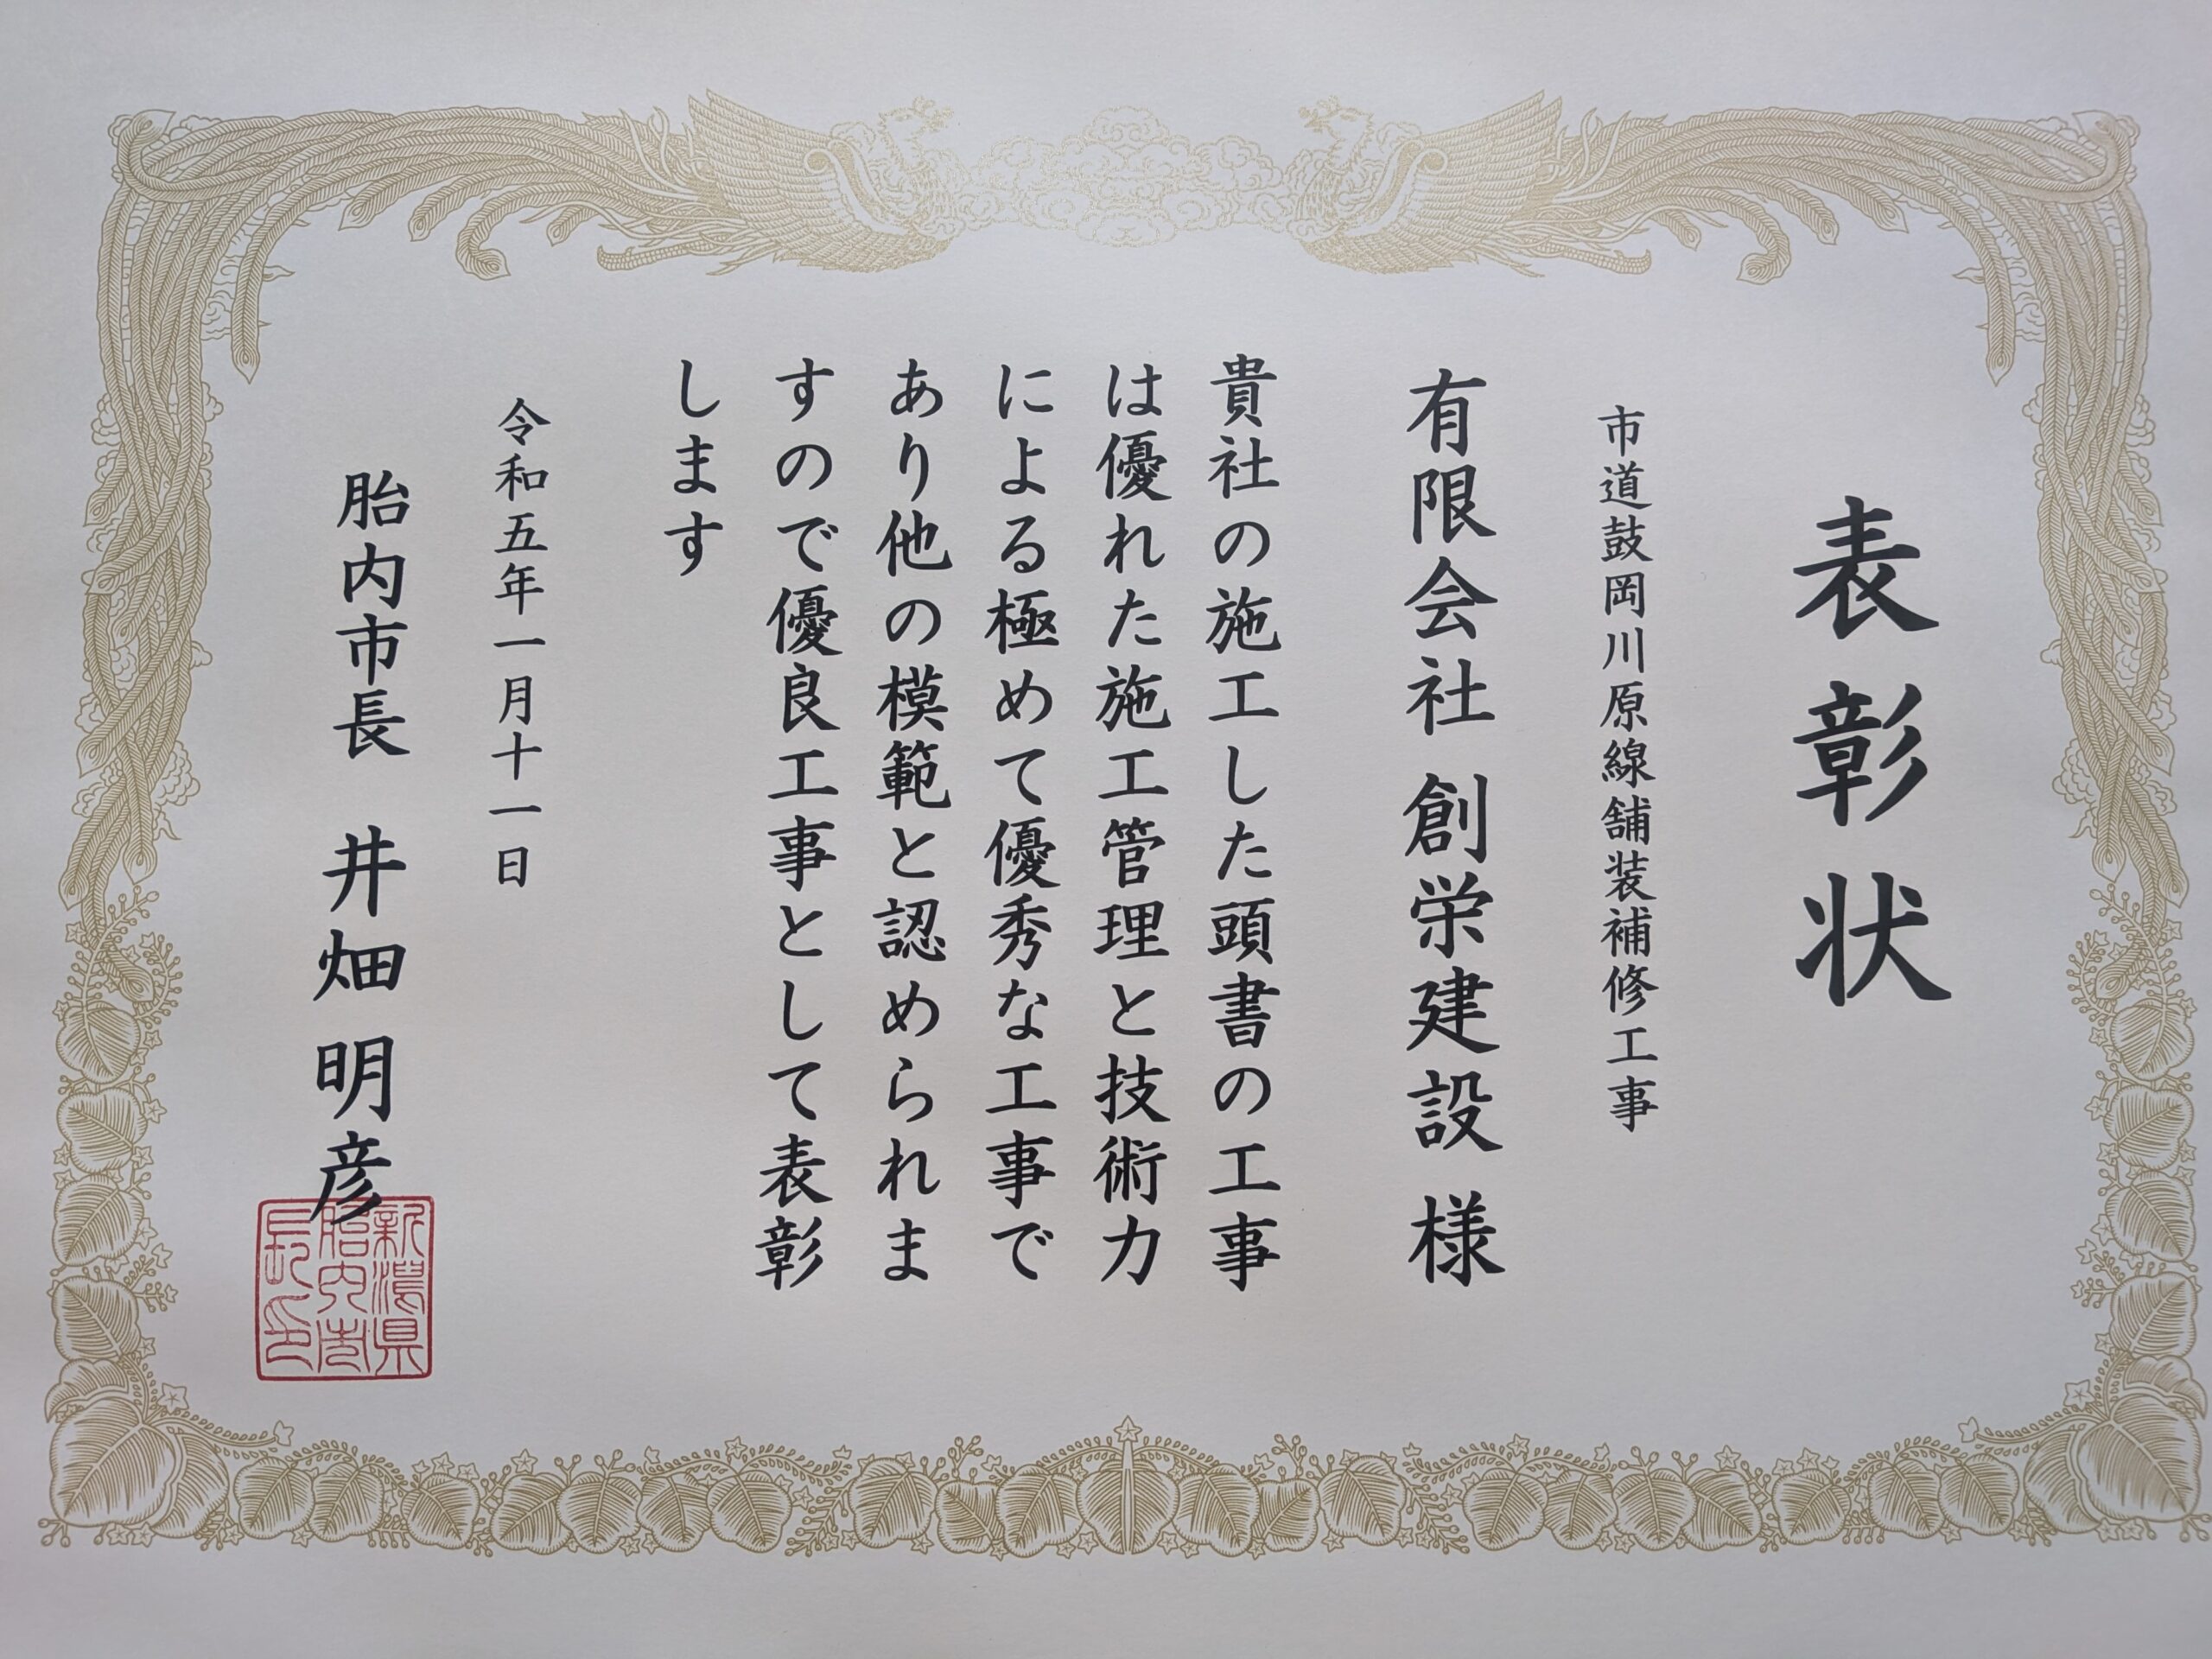 表彰状
市道鼓岡川原線舗装補修工事
有限会社 創栄建設 様
貴社の施工した頭書の工事
は優れた施工管理と技術力
による極めて優秀な工事で
あり他の模範と認められま
すので優良工事として表彰
します
令和五年一月十一日
胎内市長 井畑明彦
新潟県
胎内市
長之印